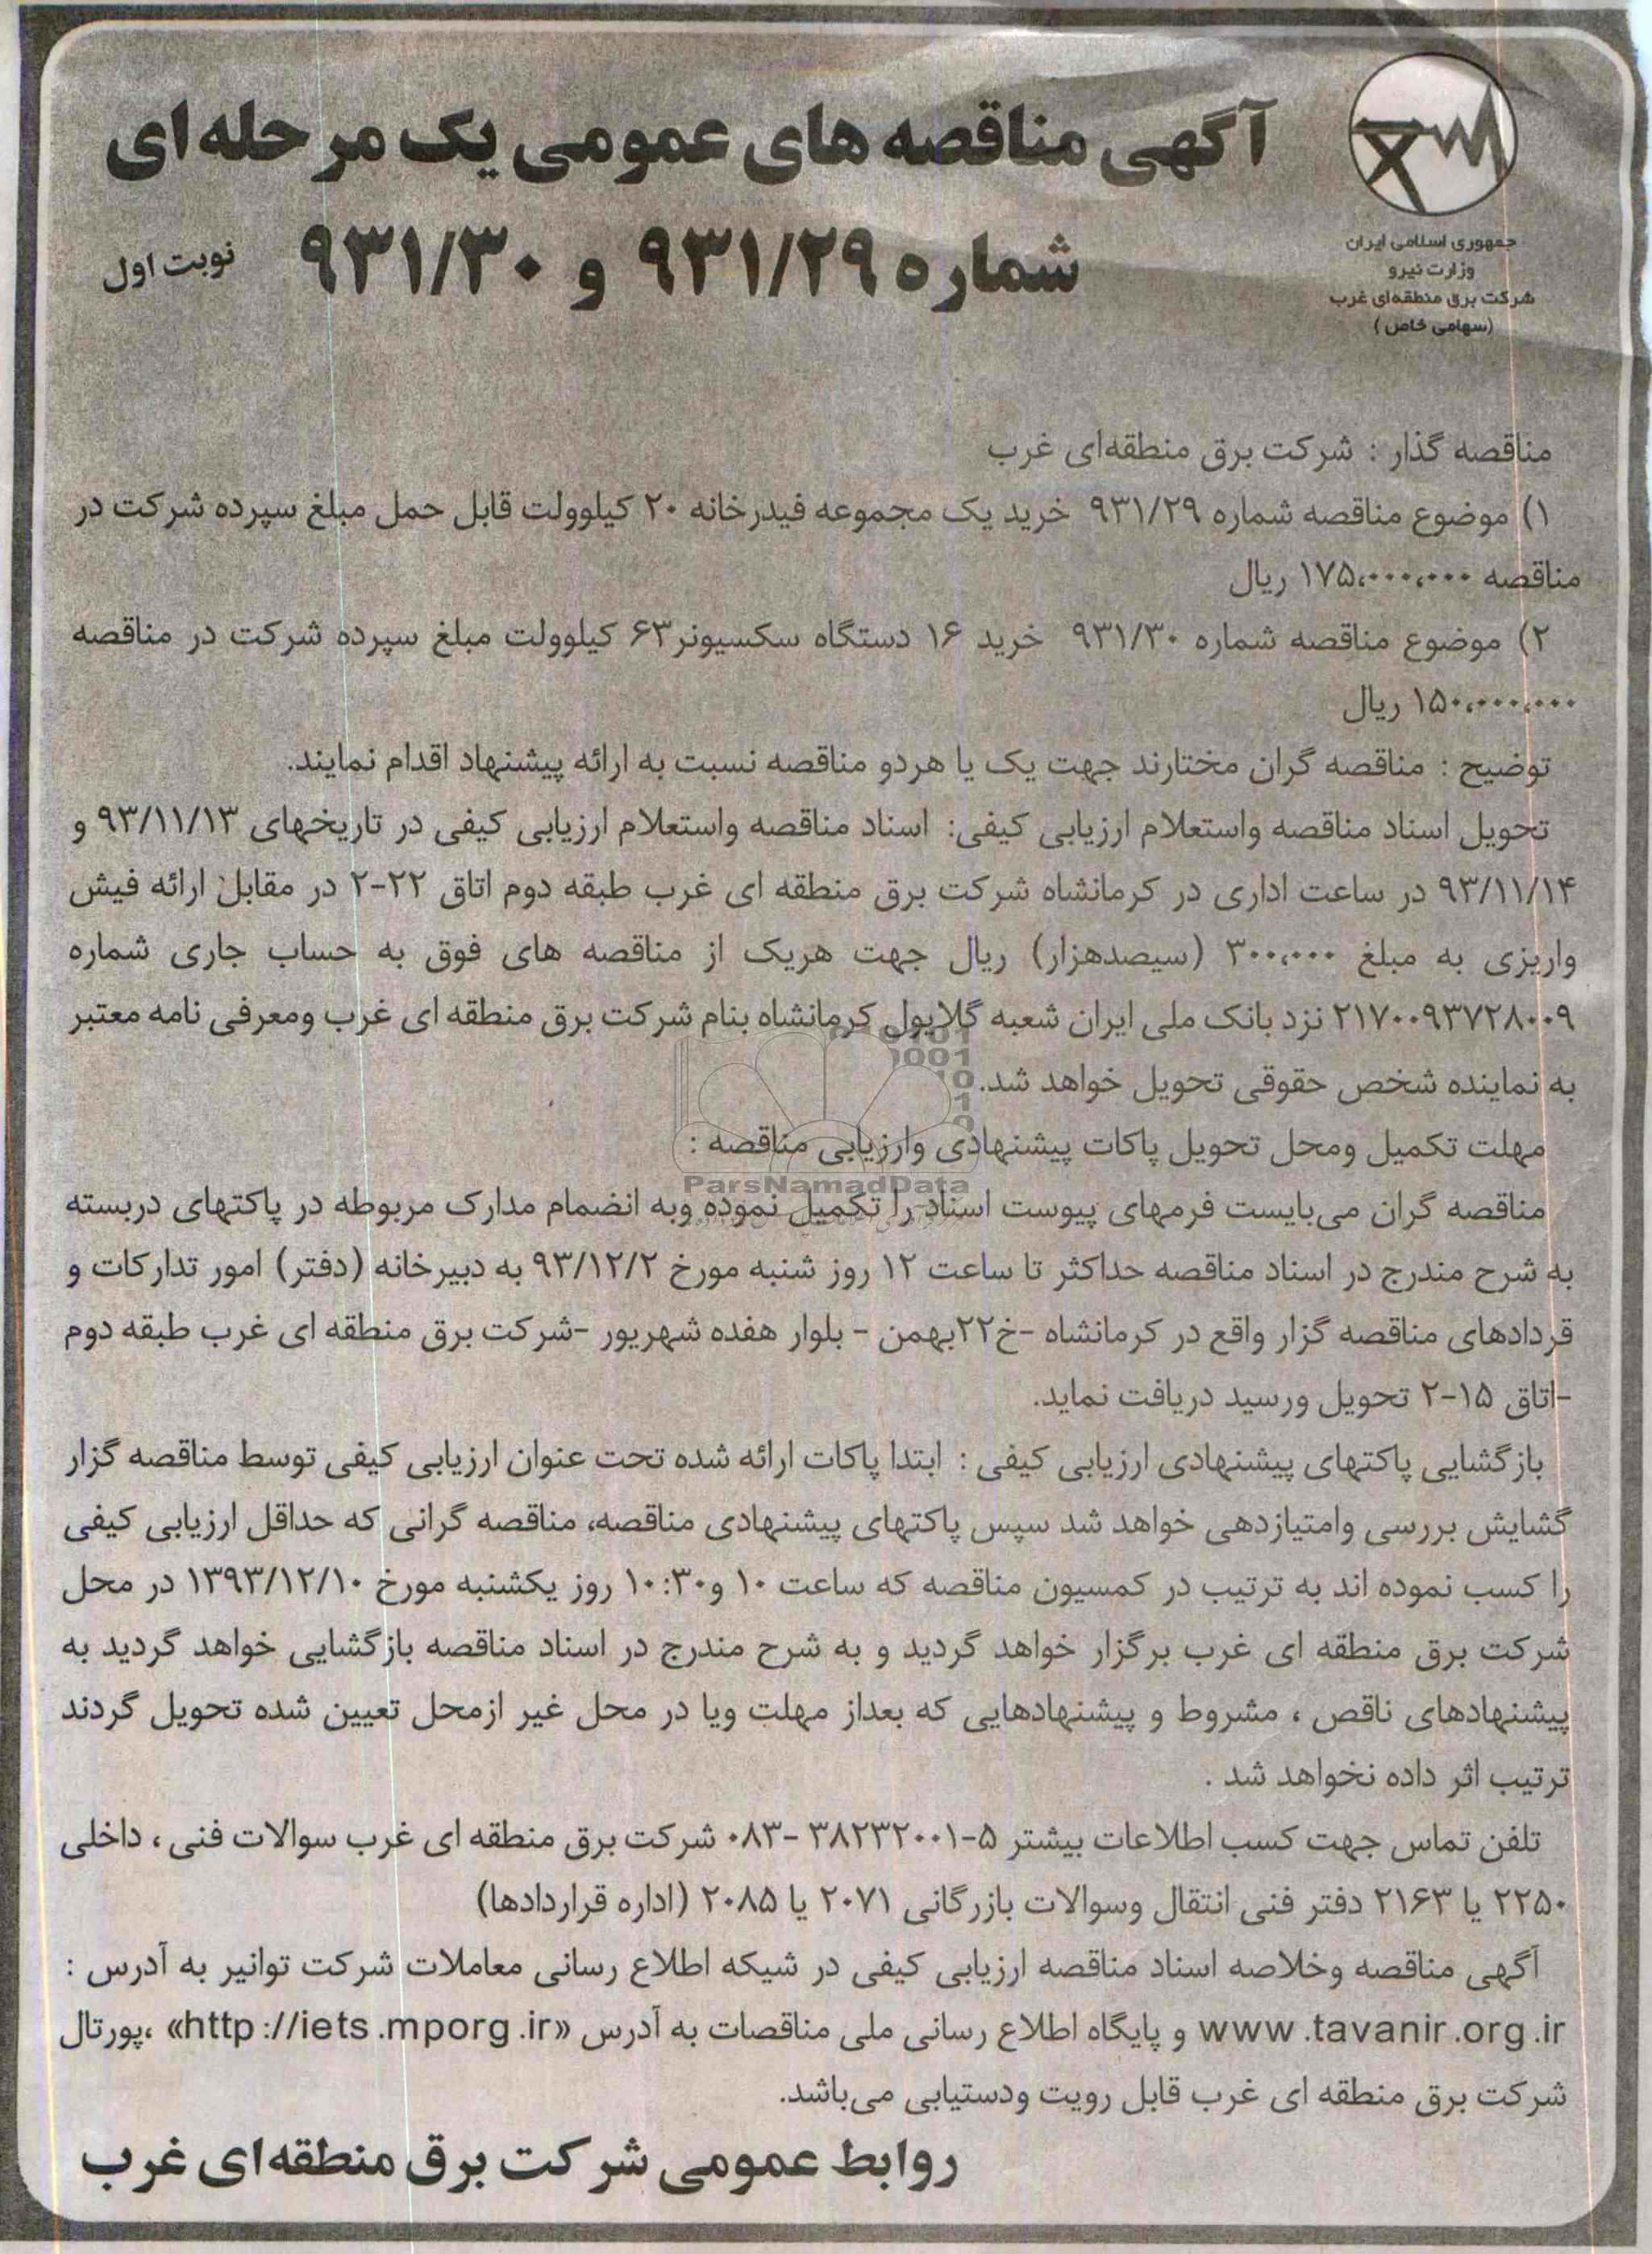 آگهی مناقصه های عمومی یک مرحله ای
شماره ۹۳۱/۲۹ و ۹۳۱/۳۰
نوبت اول
جمهوری اسلامی ایران
وزارت نیرو
شرکت برق منطقه‌ای غرب
(سهامی خاص)
مناقصه گذار : شرکت برق منطقه‌ای غرب
۱) موضوع مناقصه شماره ۹۳۱/۲۹ خرید یک مجموعه فیدرخانه ۲۰ کیلوولت قابل حمل مبلغ سپرده شرکت در
مناقصه ۱۷۵،۰۰۰،۰۰۰ ریال
۲) موضوع مناقصه شماره ۹۳۱/۳۰ خرید ۱۶ دستگاه سکسیونر۶۳ کیلوولت مبلغ سپرده شرکت در مناقصه
۱۵۰،۰۰۰،۰۰۰ ریال
توضیح : مناقصه گران مختارند جهت یک یا هردو مناقصه نسبت به ارائه پیشنهاد اقدام نمایند.
تحویل اسناد مناقصه واستعلام ارزیابی کیفی: اسناد مناقصه واستعلام ارزیابی کیفی در تاریخهای ۹۳/۱۱/۱۳ و
۹۳/۱۱/۱۴ در ساعت اداری در کرمانشاه شرکت برق منطقه ای غرب طبقه دوم اتاق ۲۲-۲ در مقابل ارائه فیش
واریزی به مبلغ ۳۰۰،۰۰۰ (سیصدهزار) ریال جهت هریک از مناقصه های فوق به حساب جاری شماره
۲۱۷۰۰۹۳۷۲۸۰۰۹ نزد بانک ملی ایران شعبه گلایول کرمانشاه بنام شرکت برق منطقه ای غرب ومعرفی نامه معتبر
به نماینده شخص حقوقی تحویل خواهد شد.
مهلت تکمیل ومحل تحویل پاکات پیشنهادی وارزیابی مناقصه :
ParsNamadData
مناقصه گران می‌بایست فرمهای پیوست اسناد را تکمیل نموده وبه انضمام مدارک مربوطه در پاکتهای دربسته
به شرح مندرج در اسناد مناقصه حداکثر تا ساعت ۱۲ روز شنبه مورخ ۹۳/۱۲/۲ به دبیرخانه (دفتر) امور تدارکات و
قردادهای مناقصه گزار واقع در کرمانشاه -خ۲۲بهمن - بلوار هفده شهریور -شرکت برق منطقه ای غرب طبقه دوم
-اتاق ۱۵-۲ تحویل ورسید دریافت نماید.
بازگشایی پاکتهای پیشنهادی ارزیابی کیفی : ابتدا پاکات ارائه شده تحت عنوان ارزیابی کیفی توسط مناقصه گزار
گشایش بررسی وامتیازدهی خواهد شد سپس پاکتهای پیشنهادی مناقصه، مناقصه گرانی که حداقل ارزیابی کیفی
را کسب نموده اند به ترتیب در کمسیون مناقصه که ساعت ۱۰ و۱۰:۳۰ روز یکشنبه مورخ ۱۳۹۳/۱۲/۱۰ در محل
شرکت برق منطقه ای غرب برگزار خواهد گردید و به شرح مندرج در اسناد مناقصه بازگشایی خواهد گردید به
پیشنهادهای ناقص ، مشروط و پیشنهادهایی که بعداز مهلت ویا در محل غیر ازمحل تعیین شده تحویل گردند
ترتیب اثر داده نخواهد شد .
تلفن تماس جهت کسب اطلاعات بیشتر ۵-۳۸۲۳۲۰۰۱ -۰۸۳ شرکت برق منطقه ای غرب سوالات فنی ، داخلی
۲۲۵۰ یا ۲۱۶۳ دفتر فنی انتقال وسوالات بازرگانی ۲۰۷۱ یا ۲۰۸۵ (اداره قراردادها)
آگهی مناقصه وخلاصه اسناد مناقصه ارزیابی کیفی در شیکه اطلاع رسانی معاملات شرکت توانیر به آدرس :
www.tavanir.org.ir و پایگاه اطلاع رسانی ملی مناقصات به آدرس «http://iets.mporg.ir» ،پورتال
شرکت برق منطقه ای غرب قابل رویت ودستیابی می‌باشد.
روابط عمومی شرکت برق منطقه‌ای غرب